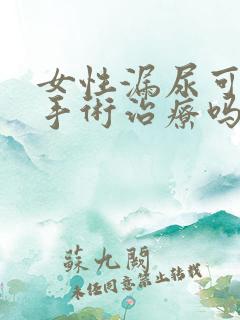 女性漏尿可
手術治療嗎
蘇九闕
未经同意禁止转载